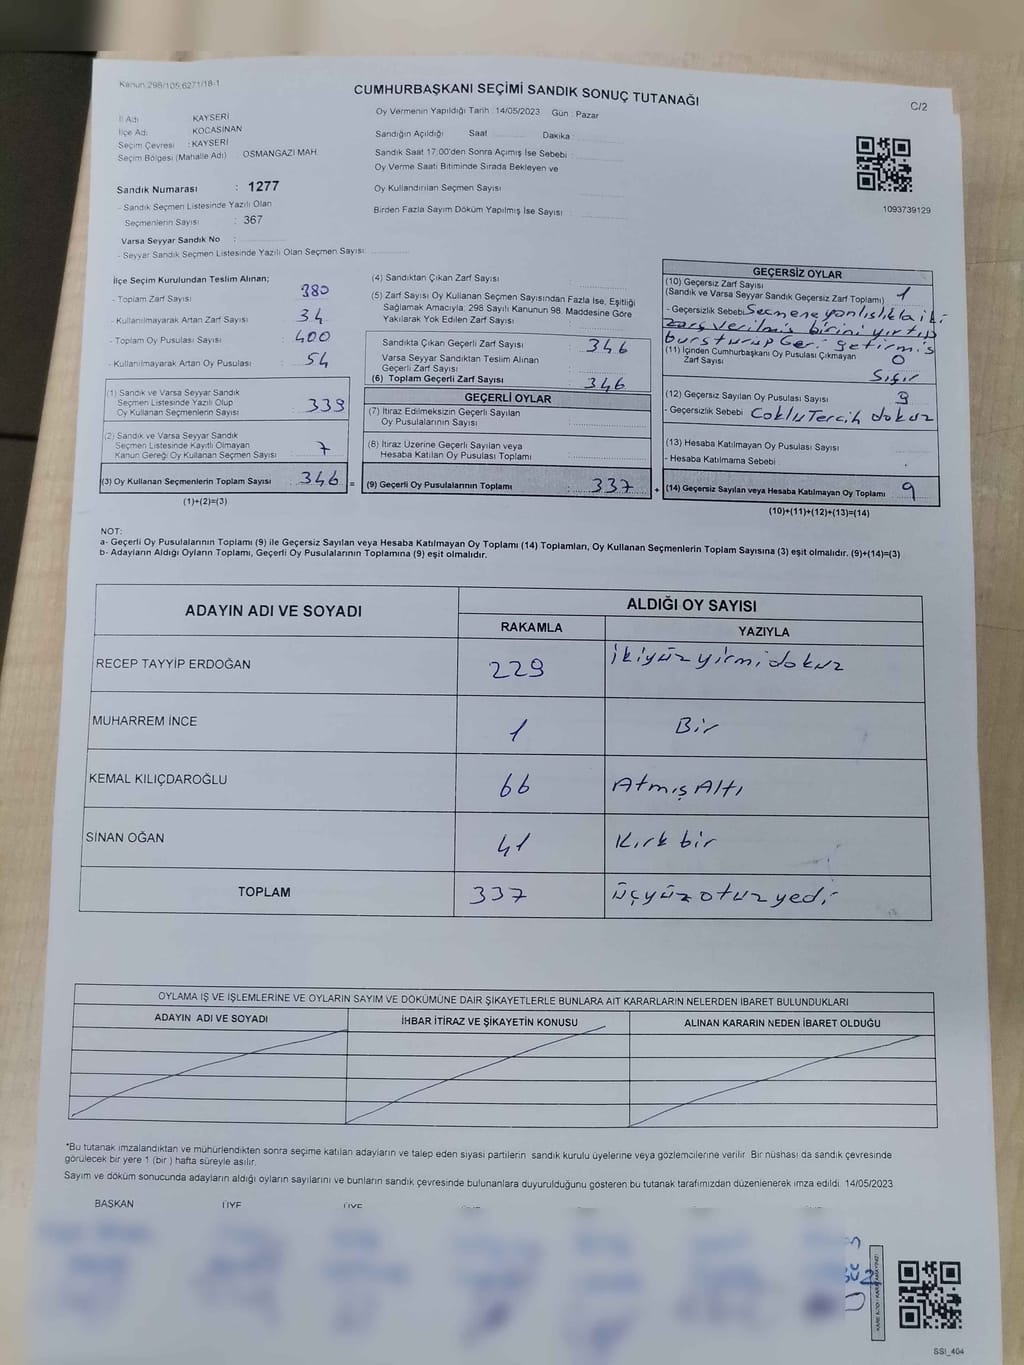 Kanun 298/105;6271/18-1
CUMHURBAŞKANI SEÇİMİ SANDIK SONUÇ TUTANAĞI
C/2
İl Adı KAYSERİ
İlçe Adı KOCASİNAN
Seçim Çevresi : KAYSERİ
Seçim Bölgesi (Mahalle Adı) OSMANGAZİ MAH.
Sandık Numarası : 1277
- Sandık Seçmen Listesinde Yazılı Olan
Seçmenlerin Sayısı : 367
Varsa Seyyar Sandık No :
- Seyyar Sandık Seçmen Listesinde Yazılı Olan Seçmen Sayısı:
Oy Vermenin Yapıldığı Tarih : 14/05/2023 Gün : Pazar
Sandığın Açıldığı Saat Dakika :
Sandık Saat 17:00'den Sonra Açımış İse Sebebi :
Oy Verme Saati Bitiminde Sırada Bekleyen ve
Oy Kullandırılan Seçmen Sayısı
Birden Fazla Sayım Döküm Yapılmış İse Sayısı :
1093739129
İlçe Seçim Kurulundan Teslim Alınan;
- Toplam Zarf Sayısı : 380
- Kullanılmayarak Artan Zarf Sayısı : 34
- Toplam Oy Pusulası Sayısı : 400
- Kullanılmayarak Artan Oy Pusulası : 54
(1) Sandık ve Varsa Seyyar Sandık
Seçmen Listesinde Yazılı Olup
Oy Kullanan Seçmenlerin Sayısı : 339
(2) Sandık ve Varsa Seyyar Sandık
Seçmen Listesinde Kayıtlı Olmayan
Kanun Gereği Oy Kullanan Seçmen Sayısı : 7
(3) Oy Kullanan Seçmenlerin Toplam Sayısı : 346 =
(1)+(2)=(3)
(4) Sandıktan Çıkan Zarf Sayısı :
(5) Zarf Sayısı Oy Kullanan Seçmen Sayısından Fazla İse, Eşitliği
Sağlamak Amacıyla; 298 Sayılı Kanunun 98. Maddesine Göre
Yakılarak Yok Edilen Zarf Sayısı :
Sandıkta Çıkan Geçerli Zarf Sayısı : 346
Varsa Seyyar Sandıktan Teslim Alınan
Geçerli Zarf Sayısı :
(6) Toplam Geçerli Zarf Sayısı : 346
GEÇERLİ OYLAR
(7) İtiraz Edilmeksizin Geçerli Sayılan
Oy Pusulalarının Sayısı :
(8) İtiraz Üzerine Geçerli Sayılan veya
Hesaba Katılan Oy Pusulası Toplamı :
(9) Geçerli Oy Pusulalarının Toplamı : 337 +
GEÇERSİZ OYLAR
(10) Geçersiz Zarf Sayısı
(Sandık ve Varsa Seyyar Sandık Geçersiz Zarf Toplamı) : 1
- Geçersizlik Sebebi Seçmene yanlışlıkla iki
zarf verilmiş birini yırtıp
burşturup Geri getirmiş
(11) İçinden Cumhurbaşkanı Oy Pusulası Çıkmayan
Zarf Sayısı 0
Sıfır
(12) Geçersiz Sayılan Oy Pusulası Sayısı 9
- Geçersizlik Sebebi Çoklu Tercih dokuz
(13) Hesaba Katılmayan Oy Pusulası Sayısı
- Hesaba Katılmama Sebebi
(14) Geçersiz Sayılan veya Hesaba Katılmayan Oy Toplamı 9
(10)+(11)+(12)+(13)=(14)
NOT:
a- Geçerli Oy Pusulalarının Toplamı (9) ile Geçersiz Sayılan veya Hesaba Katılmayan Oy Toplamı (14) Toplamları, Oy Kullanan Seçmenlerin Toplam Sayısına (3) eşit olmalıdır. (9)+(14)=(3)
b- Adayların Aldığı Oyların Toplamı, Geçerli Oy Pusulalarının Toplamına (9) eşit olmalıdır.
ADAYIN ADI VE SOYADI ALDIĞI OY SAYISI
RAKAMLA YAZIYLA
RECEP TAYYİP ERDOĞAN 229 ikiyüz yirmi dokuz
MUHARREM İNCE 1 Bir
KEMAL KILIÇDAROĞLU 66 Atmış Altı
SİNAN OĞAN 41 Kırk bir
TOPLAM 337 üçyüz otuz yedi
OYLAMA İŞ VE İŞLEMLERİNE VE OYLARIN SAYIM VE DÖKÜMÜNE DAİR ŞİKAYETLERLE BUNLARA AİT KARARLARIN NELERDEN İBARET BULUNDUKLARI
ADAYIN ADI VE SOYADI İHBAR İTİRAZ VE ŞİKAYETİN KONUSU ALINAN KARARIN NEDEN İBARET OLDUĞU
*Bu tutanak imzalandıktan ve mühürlendikten sonra seçime katılan adayların ve talep eden siyasi partilerin sandık kurulu üyelerine veya gözlemcilerine verilir. Bir nüshası da sandık çevresinde
görülecek bir yere 1 (bir ) hafta süreyle asılır.
Sayım ve döküm sonucunda adayların aldığı oyların sayılarını ve bunların sandık çevresinde bulunanlara duyurulduğunu gösteren bu tutanak tarafımızdan düzenlenerek imza edildi. 14/05/2023
BAŞKAN ÜYE ÜYE
SSI_404